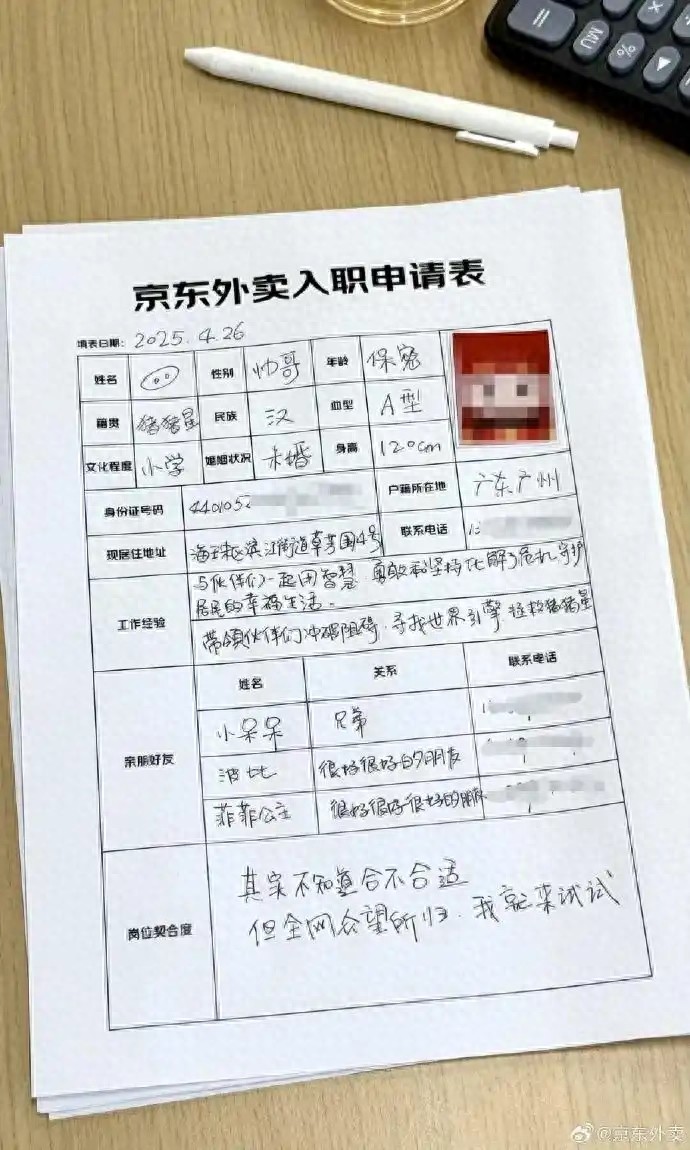 MU
%
京东外卖入职申请表
填表日期: 2025.4.26
姓名 性别 帅哥 年龄 保密
籍贯 猪猪星 民族 汉 血型 A型
文化程度 小学 婚姻状况 未婚 身高 120cm
身份证号码 4401052 户籍所在地 广东广州
现居住地址 海珠区滨江街道草芳围4号 联系电话 1
工作经验
与伙伴们一起用智慧 勇敢和坚持化解了危机守护
居民的幸福生活。
带领伙伴们冲破阻碍.寻找世界引擎 拯救猪猪星
亲朋好友
姓名 关系 联系电话
小呆呆 兄弟 1
波比 很好很好的朋友
菲菲公主 很好很好很好的朋友
岗位契合度
其实不知道合不合适
但全网众望所归.我就来试试
@京东外卖